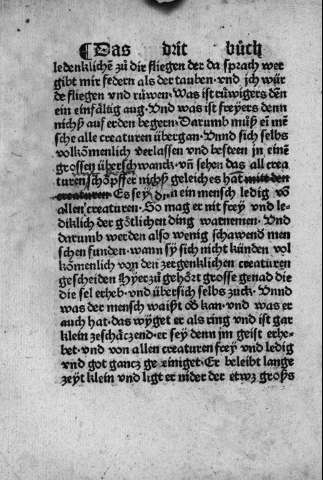 ¶ Das drit bůch
ledenklichē zů dir fliegen der da sprach wer
gibt mir federn als der tauben · vnd jch wür
de fliegen vnd růwen · Was ist růwigers dēn
ein einfåltig aug · Vnd was ist freyers denn
nichtz auf erden begern · Darumb můß ei mē
sche alle creaturen übergan · Vnnd sich selbs
volkōmenlich verlassen vnd besteen in einē
grossen überschwanck · vn̄ sehen das all crea
turen schöpffer nichtz geleiches hat mitt den
creaturen Es sey dēn ein mensch ledig vō
allen creaturen · So mag er nit frey vnd le-
diklich der gŏtlichen ding warnemen · Vnd
darumb werden also wenig schawend men
schen funden · wann sy sich nicht künden vol
kōmenlich von den zergenklichen creaturen
gescheiden Hyerzů gehört grosse genad die
die sel erheb · vnd übersich selbs zuck · Vnnd
was der mensch waißt od kan · vnd was er
auch hat · das wyget er als ring vnd ist gar
klein zeschåczend · er sey denn im geist erhe-
bet · vnd von allen creaturen frey vnd ledig
vnd got gancz ge einiget · Er beleibt lange
zeyt klein vnd ligt er nider der etwz groß